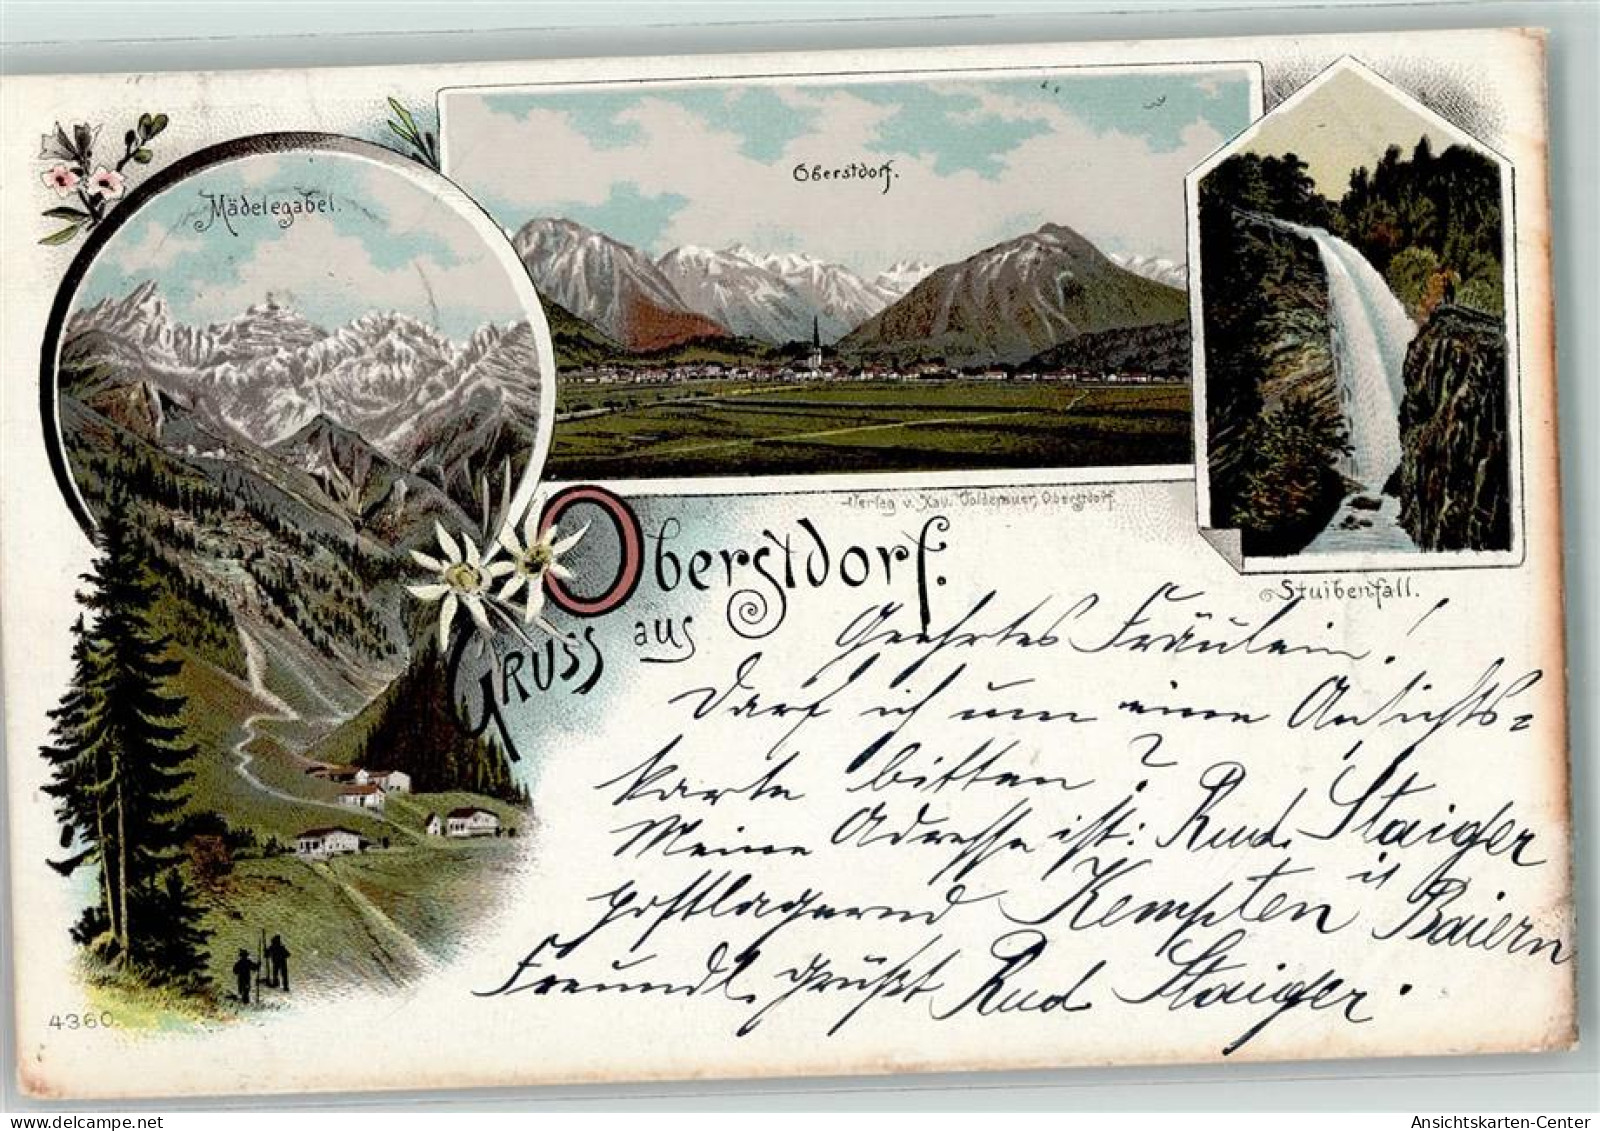 Mädelegabel.
Oberstdorf.
Verlag v. Xav. Voldenauer, Oberstdorf.
Stuibenfall.
Gruss aus Oberstdorf.
Geehrtes Fräulein!
Darf ich um eine Ansichts=
karte bitten?
Meine Adresse ist: Rud. Staiger
postlagernd Kempten i/ Baiern
Freundl. grüßt Rud Staiger.
4360.
Ansichtskarten-Center